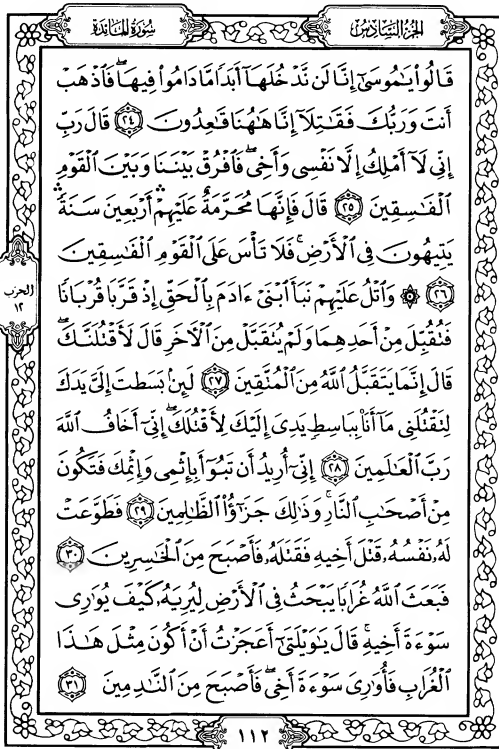 سُورَةُ المَائِدَة
الجُزْءُ السَّادِسُ
قَالُوا۟ يَٰمُوسَىٰٓ إِنَّا لَن نَّدْخُلَهَآ أَبَدًا مَّا دَامُوا۟ فِيهَا ۖ فَٱذْهَبْ
أَنتَ وَرَبُّكَ فَقَٰتِلَآ إِنَّا هَٰهُنَا قَٰعِدُونَ ٢٤ قَالَ رَبِّ
إِنِّي لَآ أَمْلِكُ إِلَّا نَفْسِى وَأَخِى ۖ فَٱفْرُقْ بَيْنَنَا وَبَيْنَ ٱلْقَوْمِ
ٱلْفَٰسِقِينَ ٢٥ قَالَ فَإِنَّهَا مُحَرَّمَةٌ ۛ عَلَيْهِمْ ۛ أَرْبَعِينَ سَنَةً
يَتِيهُونَ فِى ٱلْأَرْضِ ۚ فَلَا تَأْسَ عَلَى ٱلْقَوْمِ ٱلْفَٰسِقِينَ
٢٦ ۞ وَٱتْلُ عَلَيْهِمْ نَبَأَ ٱبْنَىْ ءَادَمَ بِٱلْحَقِّ إِذْ قَرَّبَا قُرْبَانًا
فَتُقُبِّلَ مِنْ أَحَدِهِمَا وَلَمْ يُتَقَبَّلْ مِنَ ٱلْءَاخَرِ قَالَ لَأَقْتُلَنَّكَ ۖ
قَالَ إِنَّمَا يَتَقَبَّلُ ٱللَّهُ مِنَ ٱلْمُتَّقِينَ ٢٧ لَئِنۢ بَسَطتَ إِلَىَّ يَدَكَ
لِتَقْتُلَنِى مَآ أَنَا۠ بِبَاسِطٍ يَدِىَ إِلَيْكَ لِأَقْتُلَكَ ۖ إِنِّىٓ أَخَافُ ٱللَّهَ
رَبَّ ٱلْعَٰلَمِينَ ٢٨ إِنِّىٓ أُرِيدُ أَن تَبُوٓأَ بِإِثْمِى وَإِثْمِكَ فَتَكُونَ
مِنْ أَصْحَٰبِ ٱلنَّارِ ۚ وَذَٰلِكَ جَزَٰٓؤُا۟ ٱلظَّٰلِمِينَ ٢٩ فَطَوَّعَتْ
لَهُۥ نَفْسُهُۥ قَتْلَ أَخِيهِ فَقَتَلَهُۥ فَأَصْبَحَ مِنَ ٱلْخَٰسِرِينَ ٣٠
فَبَعَثَ ٱللَّهُ غُرَابًا يَبْحَثُ فِى ٱلْأَرْضِ لِيُرِيَهُۥ كَيْفَ يُوَٰرِى
سَوْءَةَ أَخِيهِ ۚ قَالَ يَٰوَيْلَتَىٰٓ أَعَجَزْتُ أَنْ أَكُونَ مِثْلَ هَٰذَا
ٱلْغُرَابِ فَأُوَٰرِىَ سَوْءَةَ أَخِى ۖ فَأَصْبَحَ مِنَ ٱلنَّٰدِمِينَ ٣١
الحزب
١٢
١١٢